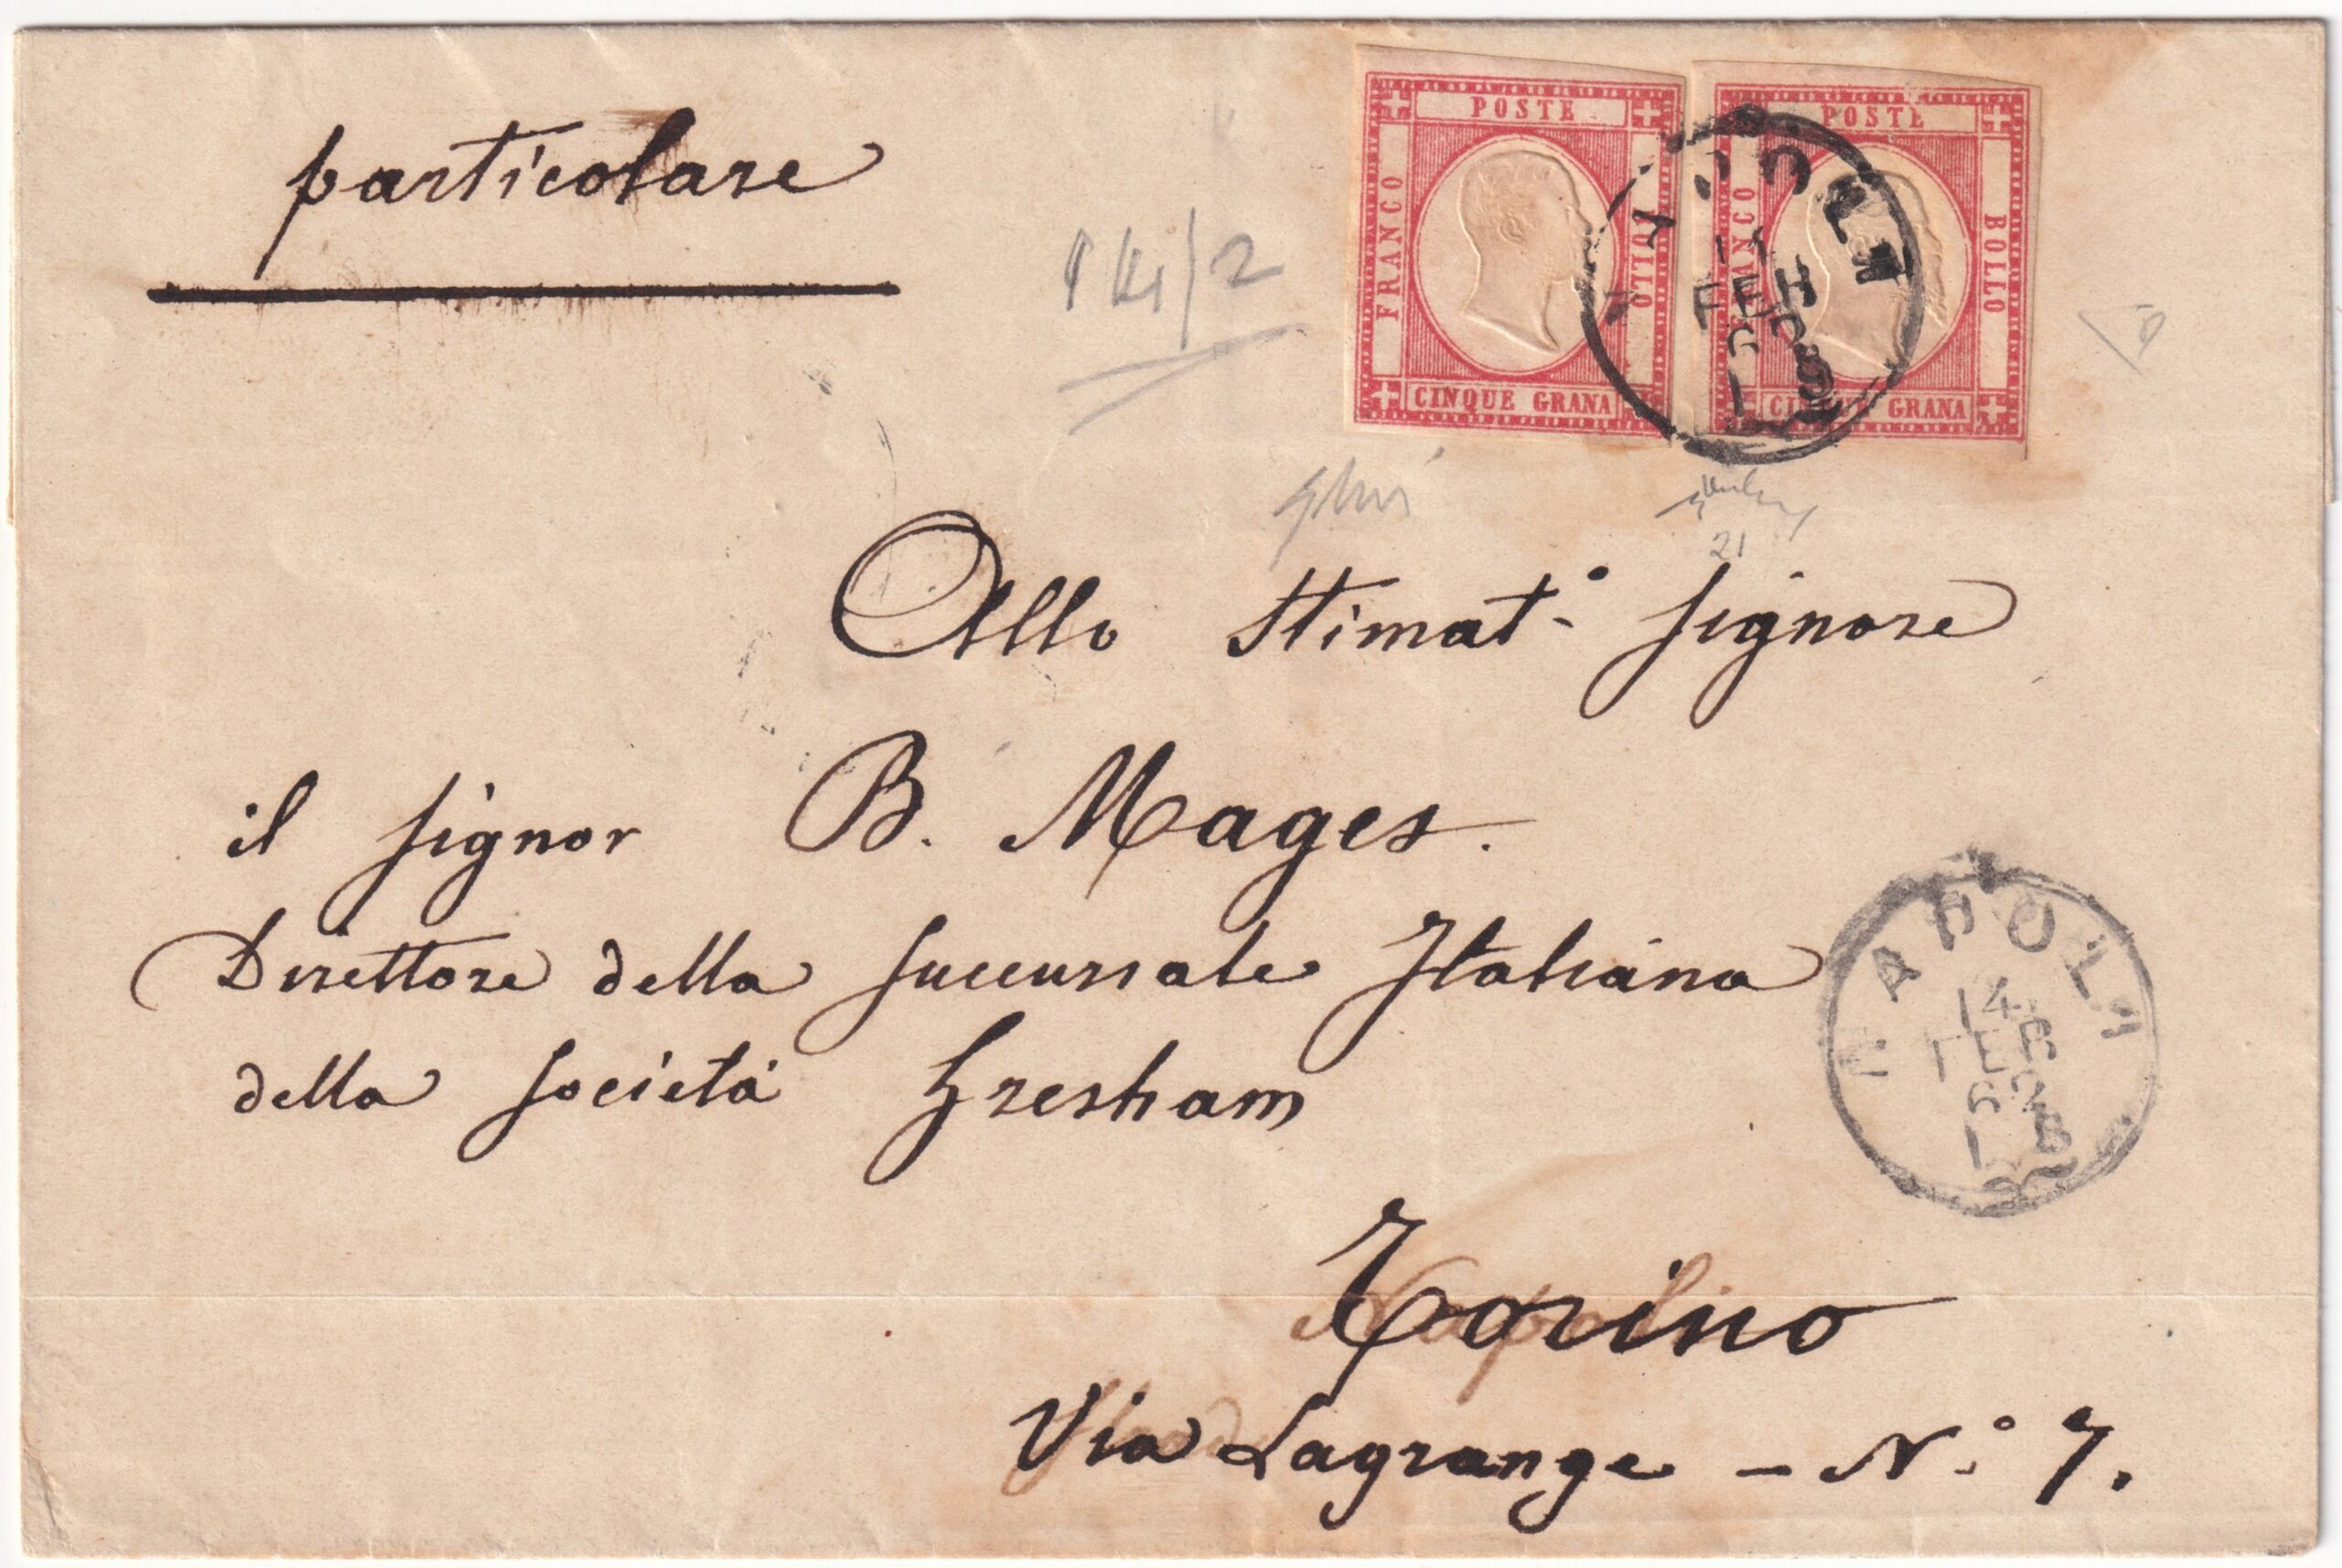 particolare
POSTE
FRANCO
BOLLO
CINQUE GRANA
POSTE
FRANCO
BOLLO
CINQUE GRANA
NAPOLI
14
FEB
21
Allo Stimat.o Signore
il Signor B. Mages.
Direttore della Succursale Italiana
della Società Gresham
NAPOLI
14
FEB
62
Torino
Via Lagrange - N.o 7.